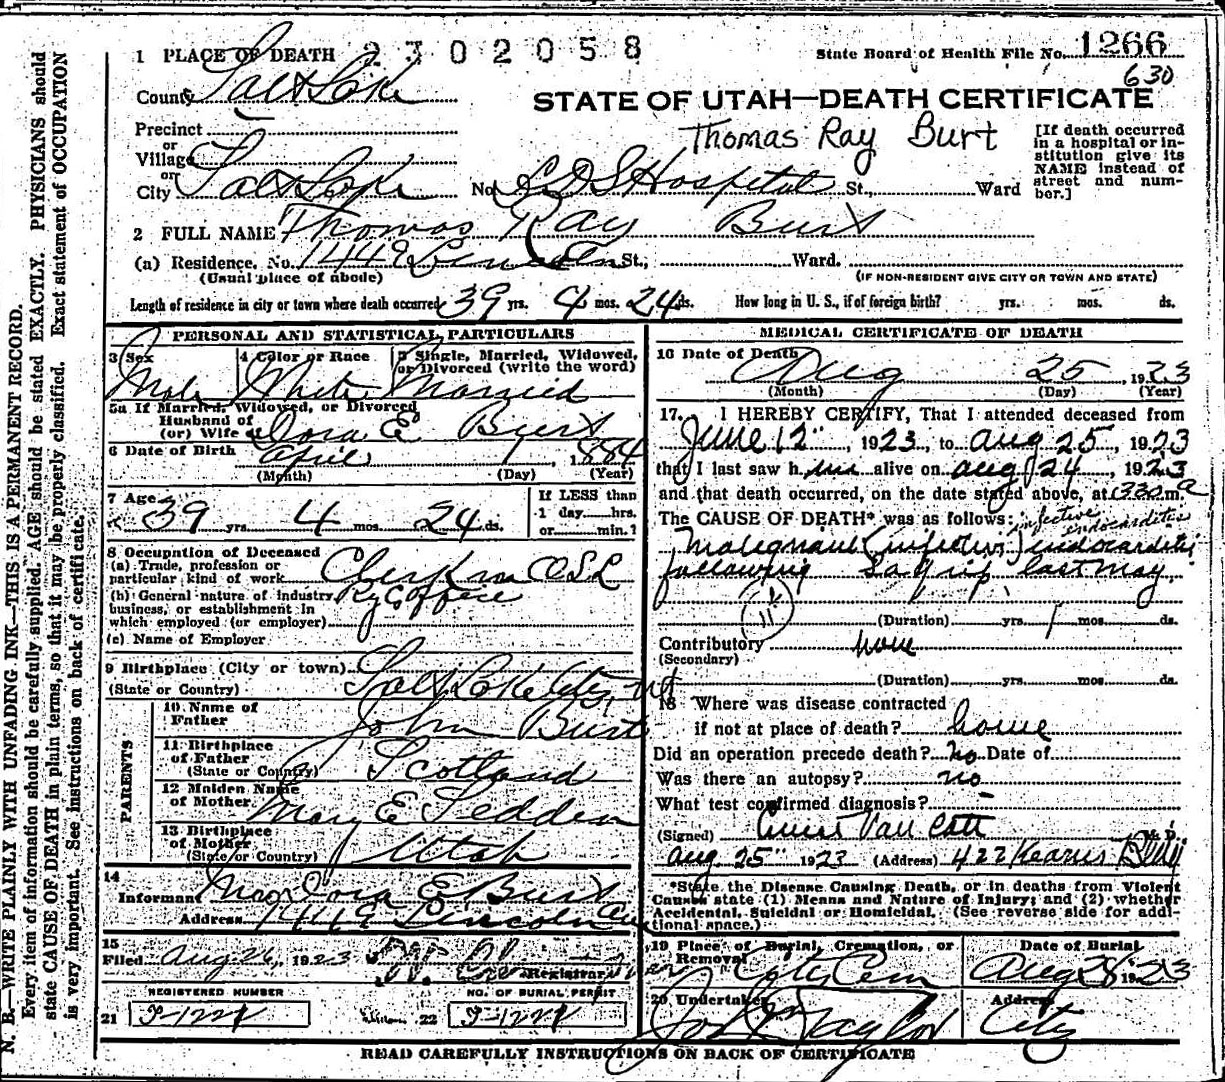 1 PLACE OF DEATH 2302058
State Board of Health File No. 1266
630
County Salt Lake
STATE OF UTAH—DEATH CERTIFICATE
Precinct
or
Village
or
City Salt Lake No. L D S Hospital St., Ward
Thomas Ray Burt
[If death occurred
in a hospital or in-
stitution give its
NAME instead of
street and num-
ber.]
2 FULL NAME Thomas Ray Burt
(a) Residence. No. 1449 Lincoln St., Ward.
(Usual place of abode) (IF NON-RESIDENT GIVE CITY OR TOWN AND STATE)
Length of residence in city or town where death occurred 39 yrs. 4 mos. 24 ds. How long in U. S., if of foreign birth? yrs. mos. ds.
PERSONAL AND STATISTICAL PARTICULARS
3 Sex 4 Color or Race 5 Single, Married, Widowed,
or Divorced (write the word)
Male White Married
5a If Married, Widowed, or Divorced
Husband of
(or) Wife of Dora E Burt
6 Date of Birth April 1, 1884
(Month) (Day) (Year)
7 Age 39 yrs. 4 mos. 24 ds.
If LESS than
1 day hrs.
or min.?
8 Occupation of Deceased
(a) Trade, profession or
particular kind of work Clerk in OSL
(b) General nature of industry,
business, or establishment in
which employed (or employer) Ry Co office
(c) Name of Employer
9 Birthplace (City or town)
(State or Country) Salt Lake City, Ut
PARENTS
10 Name of
Father John Burt
11 Birthplace
of Father
(State or Country) Scotland
12 Maiden Name
of Mother Mary E Seddon
13 Birthplace
of Mother
(State or Country) Utah
14
Informant Mrs Dora E. Burt
Address 1449 Lincoln Ave
15
Filed Aug 26, 1923
Registrar
REGISTERED NUMBER NO. OF BURIAL PERMIT
21 22
MEDICAL CERTIFICATE OF DEATH
16 Date of Death
Aug 25, 1923
(Month) (Day) (Year)
17. I HEREBY CERTIFY, That I attended deceased from
June 12", 1923, to Aug 25, 1923
that I last saw him alive on Aug 24, 1923
and that death occurred, on the date stated above, at 330 a m.
The CAUSE OF DEATH* was as follows: infective
endocarditis
Malignant (infective) endocarditis
following La Grip last May
11
(Duration) yrs. 1 mos. ds.
Contributory none
(Secondary)
(Duration) yrs. mos. ds.
18 Where was disease contracted
if not at place of death? home
Did an operation precede death? no Date of
Was there an autopsy? no
What test confirmed diagnosis?
(Signed) Van Cott M. D.
Aug 25" 1923 (Address) 422 Kearns Bldg
*State the Disease Causing Death, or in deaths from Violent
Causes state (1) Means and Nature of Injury; and (2) whether
Accidental, Suicidal or Homicidal. (See reverse side for addi-
tional space.)
19 Place of Burial, Cremation, or
Removal City Cem
Date of Burial
Aug 28, 1923
20 Undertaker Taylor
Address
City
READ CAREFULLY INSTRUCTIONS ON BACK OF CERTIFICATE
N. B.—WRITE PLAINLY WITH UNFADING INK—THIS IS A PERMANENT RECORD.
Every item of information should be carefully supplied. AGE should be stated EXACTLY. PHYSICIANS should
state CAUSE OF DEATH in plain terms, so that it may be properly classified. Exact statement of OCCUPATION
is very important. See instructions on back of certificate.